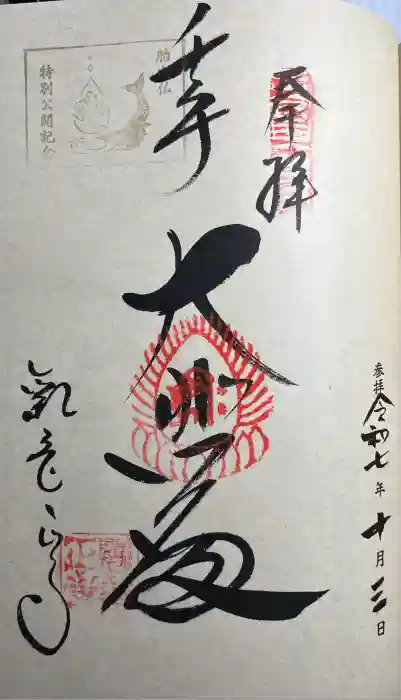 奉拝
参拝 令和七年十月三日
胎内仏
特別公開記念
千手
大悲
観音寺